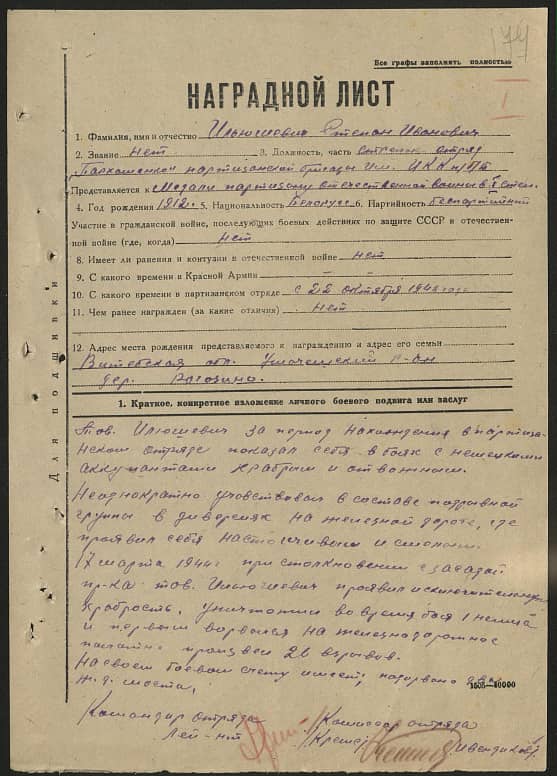 174
Все графы заполнять полностью
НАГРАДНОЙ ЛИСТ
I
1. Фамилия, имя и отчество Ильюшевич Степан Иванович
2. Звание нет 3. Должность, часть стрелок отряд
партизанской бригады им. ЦК КП/б/Б
Представляется к Медали партизану отечественной войны I степ.
4. Год рождения 1912. 5. Национальность Белорус 6. Партийность беспартийный
Участие в гражданской войне, последующих боевых действиях по защите СССР в отечествен-
ной войне (где, когда) нет
8. Имеет ли ранения и контузии в отечественной войне нет
9. С какого времени в Красной Армии —
10. С какого времени в партизанском отряде с 22 октября года
11. Чем ранее награжден (за какие отличия) нет
12. Адрес места рождения представляемого к награждению и адрес его семьи
Витебская обл. Ушачский р-он
дер.
Для подшивки
1. Краткое, конкретное изложение личного боевого подвига или заслуг
Тов. Илюшевич за период нахождения в партиза-
нском отряде показал себя в боях с немецкими
аккупантами храбрым и отважным.
Неоднократно учавствовал в составе подрывной
группы в диверсиях на железной дороге, где
проявил себя настойчивым и смелым.
17 марта 1944г. при столкновении с засадой
пр-ка тов. Ильюшевич проявил исключительную
храбрость, уничтожил во время боя 1 немца
и первым ворвался на железнодорожное
полотно произвел 26 взрывов.
На своем боевом счету имеет, подорвано два
ж.д. моста,
1606—10000
Командир отряда Комиссар отряда
Лей-нт